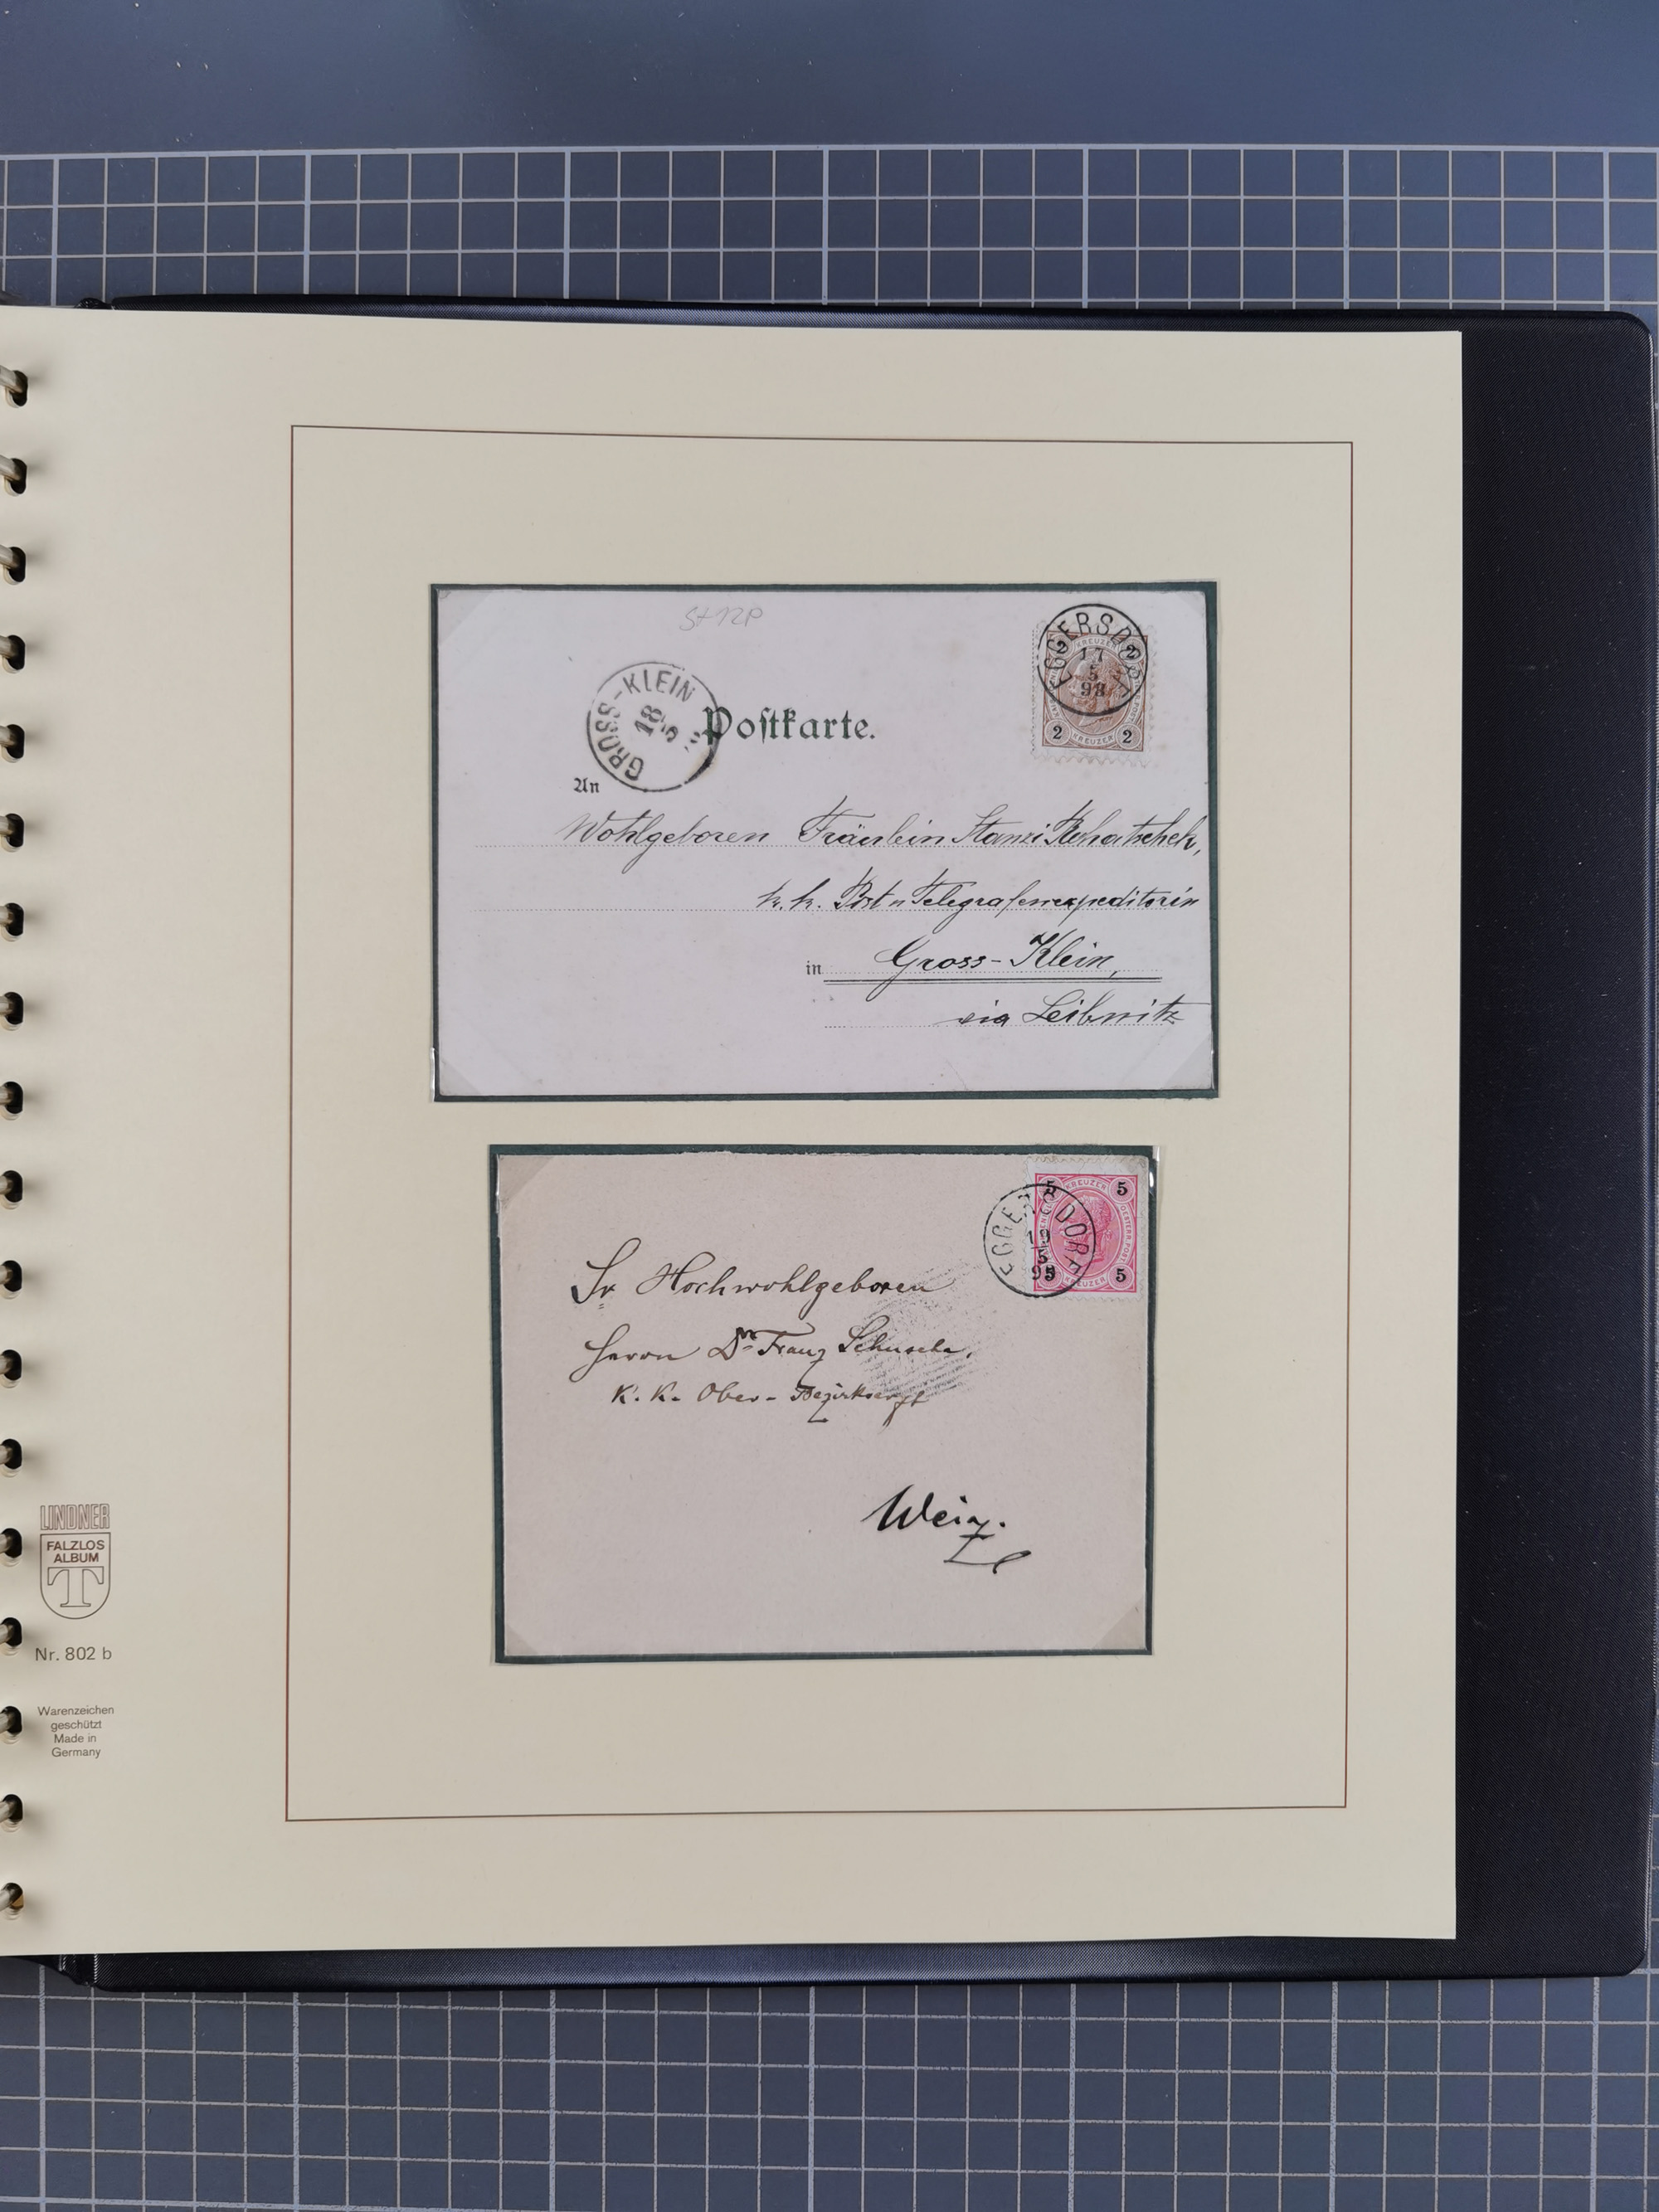 St 12P
GROSS-KLEIN
18
5
Postkarte.
EGGERSDORF
17
5
98
2
2
KREUZER
2
2
KREUZER
An
Wohlgeboren Fräulein Stanzi Rehatschek,
k. k. Post u Telegrafenexpeditorin
in Gross-Klein,
via Leibnitz
EGGERSDORF
19
5
95
5
5
KREUZER
OESTERR. POST
5
5
KREUZER
Sr Hochwohlgeboren
Herrn Dr Franz
K. K. Ober-
Weiz.
LINDNER
FALZLOS
ALBUM
T
Nr. 802 b
Warenzeichen
geschützt
Made in
Germany